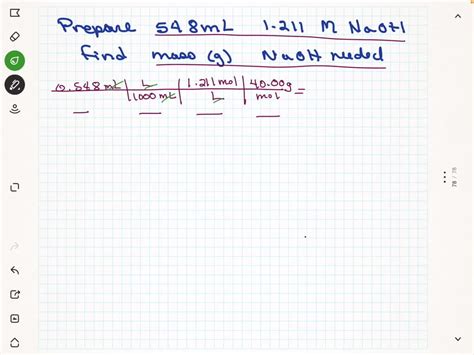 Prepare 548mL 1.211 M NaOH
find mass (g) NaOH needed
0.548mL | L | 1.211mol | 40.00g =
1000mL | L | mol
78 / 78